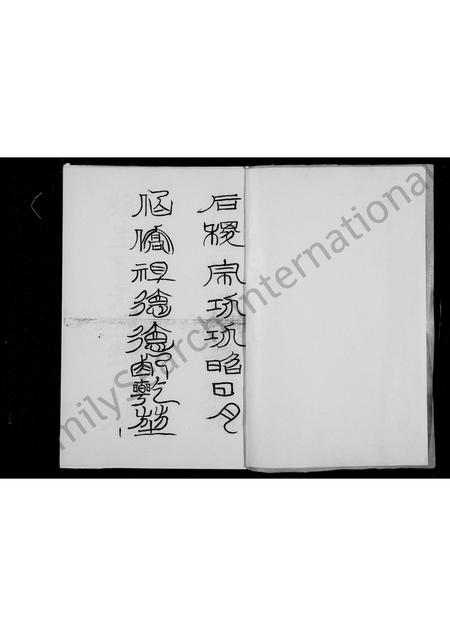 后稷宗功功昭日月
伯僑祖德德配乾坤
milySearch International